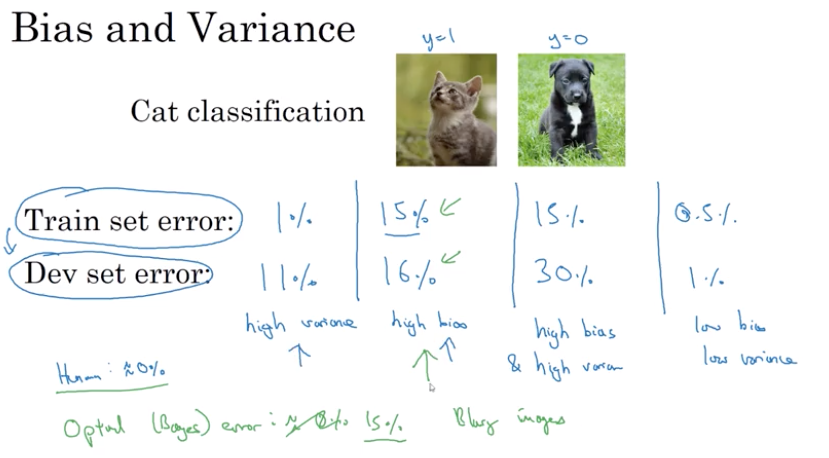 Bias and Variance
y=1 y=0
Cat classification
Train set error: 1% 15% 15% 0.5%
Dev set error: 11% 16% 30% 1%
high variance high bias high bias & high varian low bias low variance
Human: ≈0%
Optimal (Bayes) error: ≈ 0% 15% Blurry images